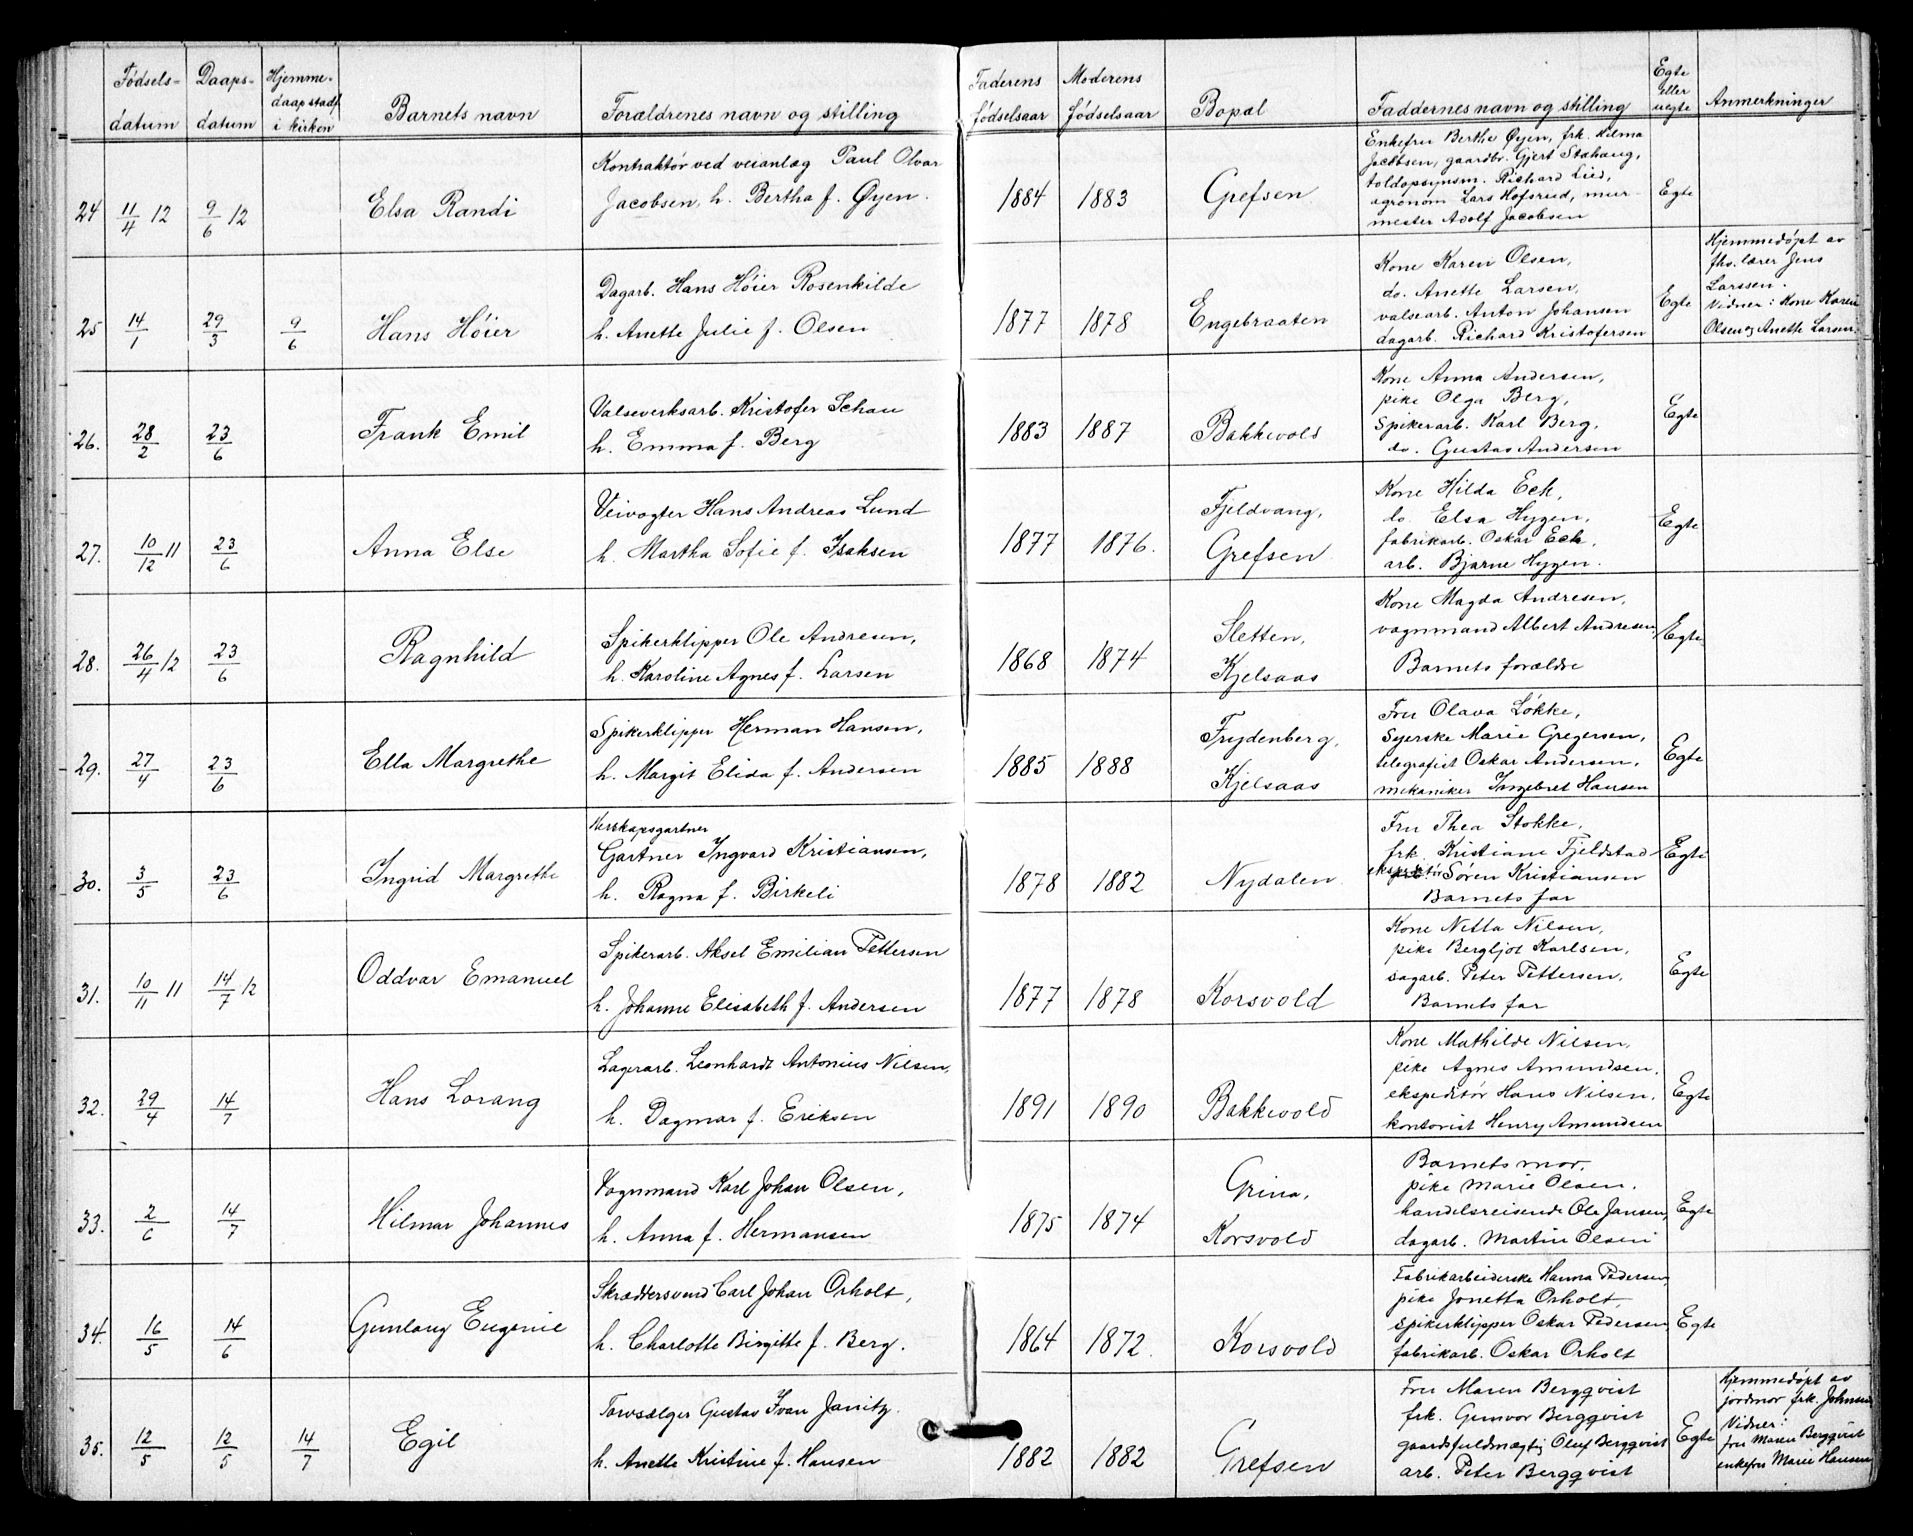 Fødsels-
datum
Daaps-
datum
Hjemme-
daap stadf.
i kirken
Barnets navn
Forældrenes navn og stilling
Faderens
fødselsaar
Moderens
fødselsaar
Bopæl
Faddernes navn og stilling
Egte
eller
uegte
Anmerkninger
24
11/4 12
9/6 12
Elsa Randi
Kontraktør ved veianlæg Paul Olvar
Jacobsen, h. Bertha f. Øyen.
1884
1883
Grefsen
Enkefru Berthe Øyen, frk. Vilma
Jacobsen, gaardbr. Gjert Stahaug,
toldopsynsm. Richard Lied,
agronom Lars Hofsrud, mur-
mester Adolf Jacobsen
Egte
25
14/1
29/3
9/6
Hans Höier
Dagarb. Hans Höier Rosenkilde
h. Anette Julie f. Olsen
1877
1878
Engebraaten
Kone Karen Olsen,
do. Anette Larsen,
valsearb. Anton Johansen
dagarb. Richard Kristofersen
Egte
Hjemmedøpt av
fhv. lærer Jens
Larssen.
Vidner: Kone Karen
Olsen og Anette Larsen.
26.
28/2
23/6
Frank Emil
Valseverksarb. Kristofer Schau
h. Emma f. Berg
1883
1887
Bakkevold
Kone Anna Andersen,
pike Olga Berg,
Spikerarb. Karl Berg,
do. Gustav Andersen
Egte
27.
10/12 11
23/6
Anna Else
Veivogter Hans Andreas Lund
h. Martha Sofie f. Isaksen
1877
1876.
Fjeldvang,
Grefsen
Kone Hilda Eck,
do Elsa Hygen,
fabrikarb. Oskar Eck,
arb. Bjarne Hygen.
Egte
28.
26/4 12
23/6
Ragnhild
Spikerklipper Ole Andresen,
h. Karoline Agnes f. Larsen
1868
1874
Sletten,
Kjelsaas
Kone Magda Andresen,
vognmand Albert Andresen,
Barnets forældre
Egte
29.
27/4
23/6
Ella Margrethe
Spikerklipper Herman Hansen,
h. Margit Elida f. Andersen
1885
1888
Frydenberg,
Kjelsaas
Fru Olava Løkke,
Syerske Marie Gregersen,
telegrafist Oskar Andersen,
mekaniker Ingebret Hansen
Egte
30.
3/5
23/6
Ingrid Margrethe
Herskapsgartner
Gartner Ingvard Kristiansen,
h. Ragna f. Birkeli
1878
1882
Nydalen
Fru Thea Stokke,
frk. Kristiane Fjeldstad
ekspeditør Søren Kristiansen
Barnets far
Egte
31.
10/11 11
14/7 12
Oddvar Emanuel
Spikerarb. Aksel Emilian Pettersen
h. Johanne Elisabeth f. Andersen
1877
1878
Korsvold
Kone Netta Nilsen,
pike Bergljot Karlsen,
sagarb. Peter Pettersen,
Barnets far
Egte
32.
29/4
14/7
Hans Lorang
Lagerarb. Leonhardt Antonius Nilsen,
h. Dagmar f. Eriksen
1891
1890
Bakkevold
Kone Mathilde Nilsen,
pike Agnes Amundsen,
ekspeditør Hans Nilsen,
kontorist Henry Amundsen
Egte
33.
2/6
14/7
Hilmar Johannes
Vognmand Karl Johan Olsen,
h. Anna f. Hermansen
1875
1874
Grina,
Korsvold
Barnets mor,
pike Marie Olsen,
handelsreisende Ole Jansen,
dagarb. Martin Olsen
Egte
34.
16/5
14/6
Gunlaug Eugenie
Skræddersvend Carl Johan Orholt,
h. Charlotte Birgitte f. Berg.
1864
1872.
Korsvold
Fabrikarbeiderske Hanna Pedersen,
pike Jonetta Orholt,
Spikerklipper Oskar Pedersen,
fabrikarb. Oskar Orholt
Egte
35.
12/5
12/5
14/7
Egil
Torvsælger Gustav Ivan Janitz,
h. Anette Kristine f. Hansen
1882
1882
Grefsen
Fru Maren Bergqvist
frk. Gunvor Bergqvist
gaardsfuldmægtig Oluf Bergqvist
arb. Peter Bergqvist
Egte
Hjemmedøpt av
jordmor frk. Johnsen
Vidner:
fru Maren Bergqvist
enkefru Marie Hansen